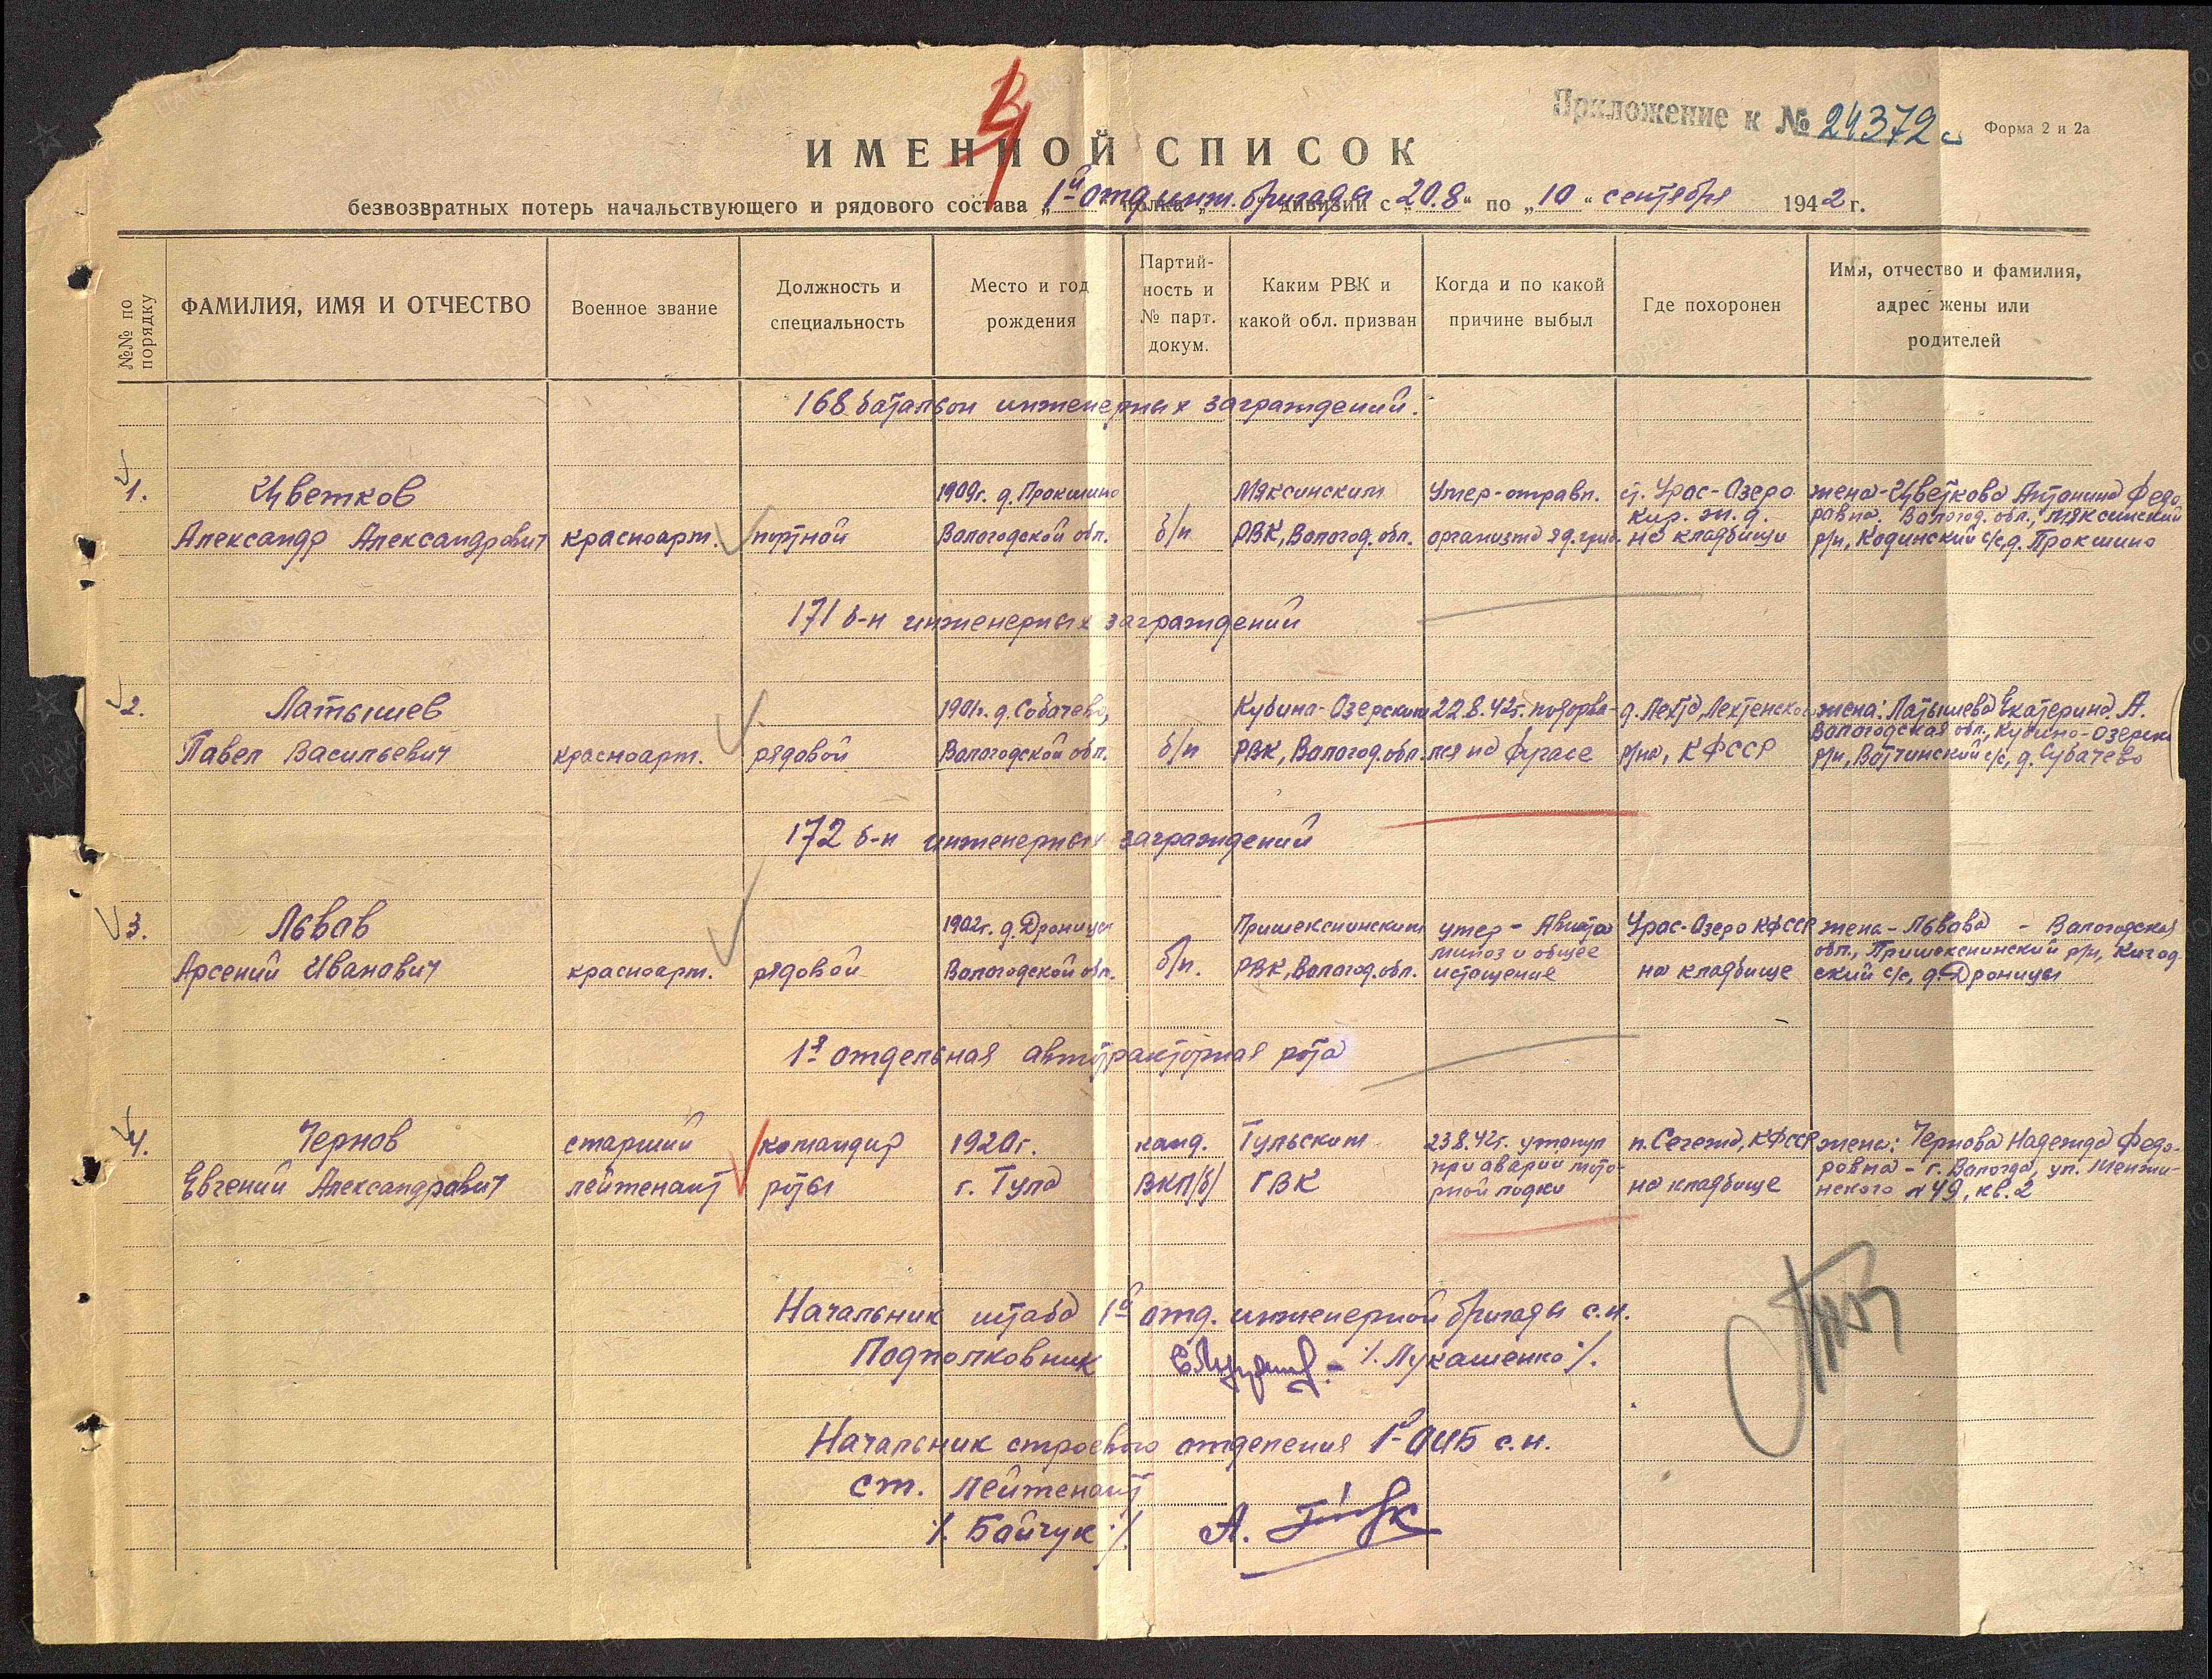 Приложение к № 24372с
Форма 2 и 2а
ИМЕННОЙ СПИСОК
безвозвратных потерь начальствующего и рядового состава „1й отд. инж. бригады дивизии с „20.8“ по „10“ сентября 1942 г.
№№ по порядку
ФАМИЛИЯ, ИМЯ И ОТЧЕСТВО
Военное звание
Должность и
специальность
Место и год
рождения
Партий-
ность и
№ парт.
докум.
Каким РВК и
какой обл. призван
Когда и по какой
причине выбыл
Где похоронен
Имя, отчество и фамилия,
адрес жены или
родителей
168 батальон инженерных заграждений.
1.
Цветков
Александр Александрович
красноарм.
портной
1909г. д. Прокшино
Вологодской обл.
б/п
Мяксинским
РВК, Волог.обл.
Умер-отравл.
организма яд. гриб.
ст. Урос-Озеро
Кир. ж.д.
на кладбищи
жена-Цветкова Антонина Федо
ровна. Волог. обл., Мяксинский
р/н, Кодинский с/с, д. Прокшино
171 б-н инженерных заграждений
2.
Латышев
Павел Васильевич
красноарм.
рядовой
1901г. д. Собачево,
Вологодской обл.
б/п
Кубино-Озерским
РВК, Волог.обл.
22.8.42г. подорва-
лся на фугасе
д. Лехта, Лехтенско
р/на, КФССР
жена: Латышева Екатерина. А.
Вологодская обл., Кубино-Озерски
р/н, Вотчинский с/с, д. Субачево
172 б-н инженерных заграждений
3.
Львов
Арсений Иванович
красноарм.
рядовой
1902г. д. Дроницы
Вологодской обл.
б/п.
Пришекснинским
РВК, Волог.обл.
умер - Авита
миноз и общее
истощение
Урос-Озеро КФССР
на кладбище
жена - Львова - Вологодская
обл., Пришекснинский р/н,
ский с/с, д. Дроницы
1я отдельная автотракторная рота
4.
Чернов
Евгений Александрович
старший
лейтенант
командир
роты
1920г.
г. Тула
канд.
ВКП/б/
Тульским
ГВК
23.8.42г. утонул
при аварии мото-
рной лодки
п. Сегежа, КФССР
на кладбище
жена: Чернова Надежда Федо-
ровна - г. Вологда, ул. Менжи-
нского № 49, кв. 2
Начальник штаба 1й отд. инженерной бригады с.н.
Подполковник /. Лукашенко ./.
Начальник строевого отделения 1й ОИБ с.н.
ст. лейтенант
/. Байчук ./.